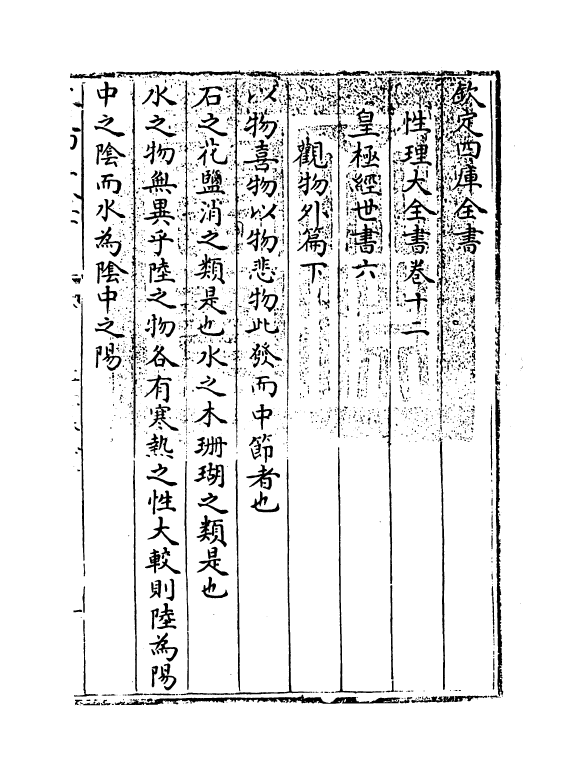 欽定四庫全書
性理大全書卷十二
皇極經世書六
觀物外篇下
以物喜物以物悲物此發而中節者也
石之花鹽消之類是也水之木珊瑚之類是也
水之物無異乎陸之物各有寒熱之性大較則陸為陽
中之陰而水為陰中之陽